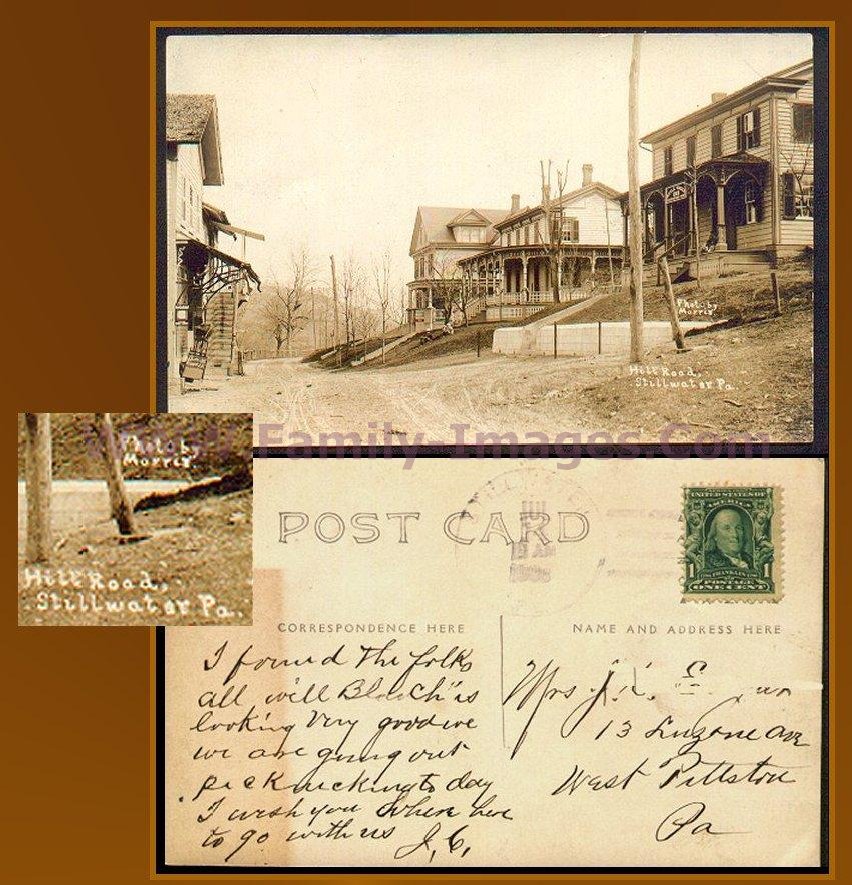 Photo by
Morris
Hill Road,
Stillwater Pa.
Family-Images.Com
Photo by
Morris
Hill Road,
Stillwater Pa.
POST CARD
JUL
AM
UNITED STATES OF
AMERICA
1 FRANKLIN 1
POSTAGE
ONE CENT
CORRESPONDENCE HERE
NAME AND ADDRESS HERE
I found the folks
all will Blanch is
looking very good we
we are going out
picknicking to day
I wish you where here
to go with us J.C.
Mrs J.
13 Luzerne Ave
West Pittston
Pa